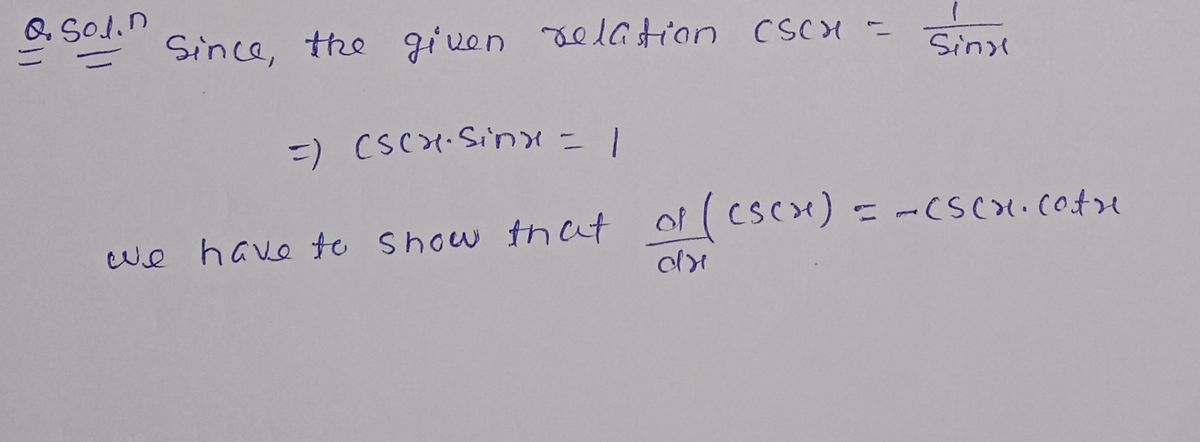 Q. Sol.n Since, the given relation cscx = 1/sinx
=) cscx.sinx = 1
we have to show that d/dx (cscx) = -cscx.cotx